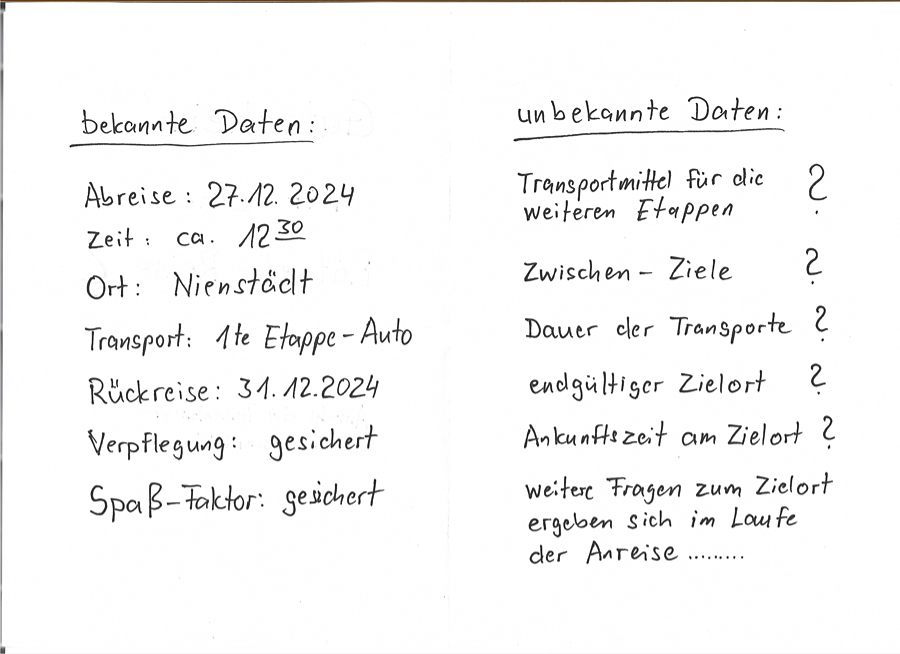 bekannte Daten:
Abreise: 27.12.2024
Zeit: ca. 12³⁰
Ort: Nienstädt
Transport: 1te Etappe - Auto
Rückreise: 31.12.2024
Verpflegung: gesichert
Spaß-Faktor: gesichert
unbekannte Daten:
Transportmittel für die
weiteren Etappen ?
Zwischen - Ziele ?
Dauer der Transporte ?
endgültiger Zielort ?
Ankunftszeit am Zielort ?
weitere Fragen zum Zielort
ergeben sich im Laufe
der Anreise .........